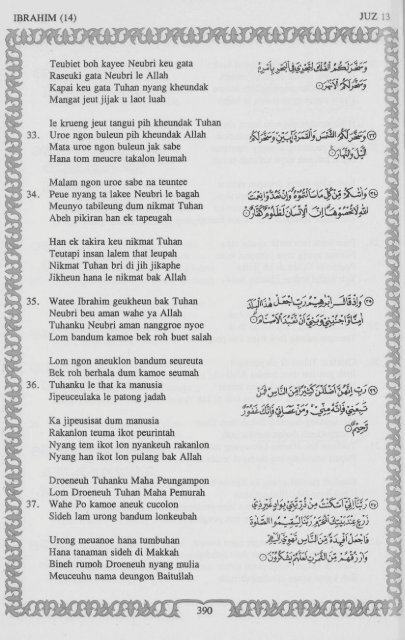 IBRAHIM (14) JUZ 13
Teubiet boh kayee Neubri keu gata
Raseuki gata Neubri le Allah
Kapai keu gata Tuhan nyang kheundak
Mangat jeut jijak u laot luah
وَسَخَّرَ لَكُمُ الْفُلْكَ لِتَجْرِيَ فِي الْبَحْرِ بِأَمْرِهِ
وَسَخَّرَ لَكُمُ الْأَنْهٰرَ
Ie krueng jeut tangui pih kheundak Tuhan
33. Uroe ngon buleun pih kheundak Allah
Mata uroe ngon buleun jak sabe
Hana tom meucre takalon leumah
وَسَخَّرَ لَكُمُ الشَّمْسَ وَالْقَمَرَ دَآئِبَيْنِ وَسَخَّرَ لَكُمُ
الَّيْلَ وَالنَّهَارَ
Malam ngon uroe sabe na teuntee
34. Peue nyang ta lakee Neubri le bagah
Meunyo tabileung dum nikmat Tuhan
Abeh pikiran han ek tapeugah
وَاٰتٰىكُمْ مِّنْ كُلِّ مَا سَاَلْتُمُوْهُ وَاِنْ تَعُدُّوْا نِعْمَتَ
اللّٰهِ لَا تُحْصُوْهَا اِنَّ الْاِنْسَانَ لَظَلُوْمٌ كَفَّارٌ
Han ek takira keu nikmat Tuhan
Teutapi insan lalem that leupah
Nikmat Tuhan bri di jih jikaphe
Jikheun hana le nikmat bak Allah
35. Watee Ibrahim geukheun bak Tuhan
Neubri beu aman wahe ya Allah
Tuhanku Neubri aman nanggroe nyoe
Lom bandum kamoe bek roh buet salah
وَاِذْ قَالَ اِبْرٰهِيْمُ رَبِّ اجْعَلْ هٰذَا الْبَلَدَ
اٰمِنًا وَّاجْنُبْنِيْ وَبَنِيَّ اَنْ نَّعْبُدَ الْاَصْنَامَ
Lom ngon aneuklon bandum seureuta
Bek roh berhala dum kamoe seumah
36. Tuhanku le that ka manusia
Jipeuceulaka le patong jadah
رَبِّ اِنَّهُنَّ اَضْلَلْنَ كَثِيْرًا مِّنَ النَّاسِ فَمَنْ
تَبِعَنِيْ فَاِنَّهٗ مِنِّيْ وَمَنْ عَصَانِيْ فَاِنَّكَ غَفُوْرٌ
رَّحِيْمٌ
Ka jipeusisat dum manusia
Rakanlon teuma ikot peurintah
Nyang tem ikot lon nyankeuh rakanlon
Nyang han ikot lon pulang bak Allah
Droeneuh Tuhanku Maha Peungampon
Lom Droeneuh Tuhan Maha Pemurah
37. Wahe Po kamoe aneuk cucolon
Sideh lam urong bandum lonkeubah
رَبَّنَآ اِنِّيْٓ اَسْكَنْتُ مِنْ ذُرِّيَّتِيْ بِوَادٍ غَيْرِ ذِيْ
زَرْعٍ عِنْدَ بَيْتِكَ الْمُحَرَّمِ رَبَّنَا لِيُقِيْمُوا الصَّلٰوةَ
فَاجْعَلْ اَفْـِٕدَةً مِّنَ النَّاسِ تَهْوِيْٓ اِلَيْهِمْ
وَارْزُقْهُمْ مِّنَ الثَّمَرٰتِ لَعَلَّهُمْ يَشْكُرُوْنَ
Urong meuanoe hana tumbuhan
Hana tanaman sideh di Makkah
Bineh rumoh Droeneuh nyang mulia
Meuceuhu nama deungon Baitullah
390